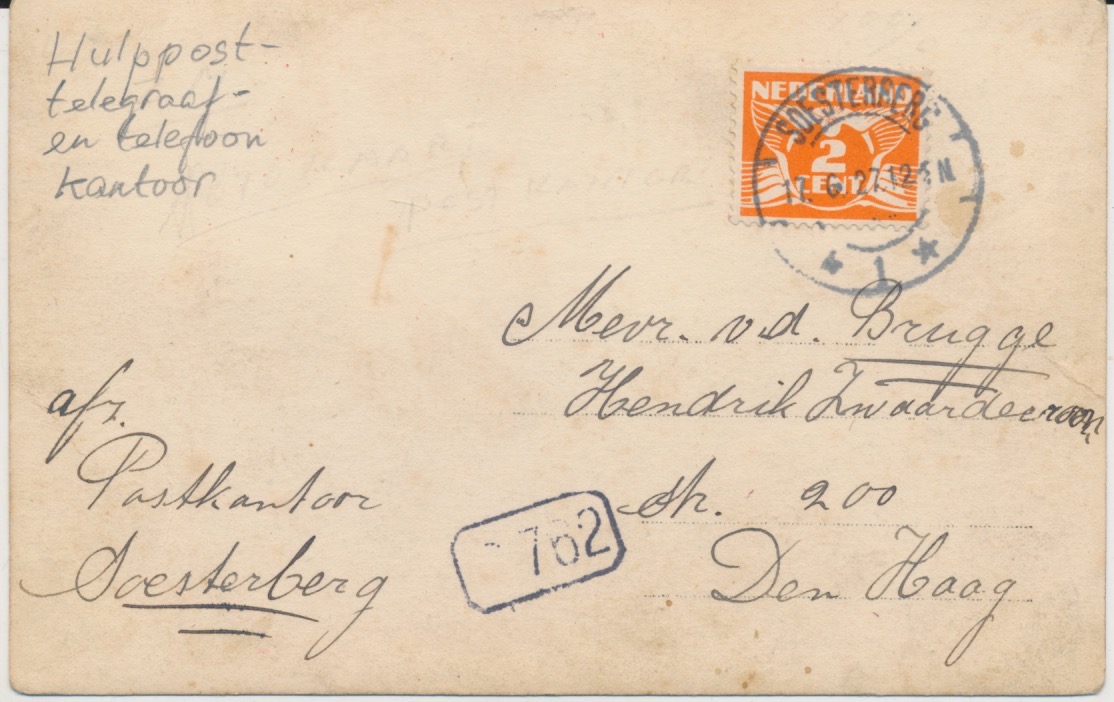 Hulppost-
telegraaf-
en telefoon
kantoor
NEDERLAND
2
CENT
SOESTERBERG
17. 6. 27. 12 N
1
Mevr. v.d. Brugge
Hendrik Zwaardecroon
str. 200
Den Haag
afz.
Postkantoor
Soesterberg
762